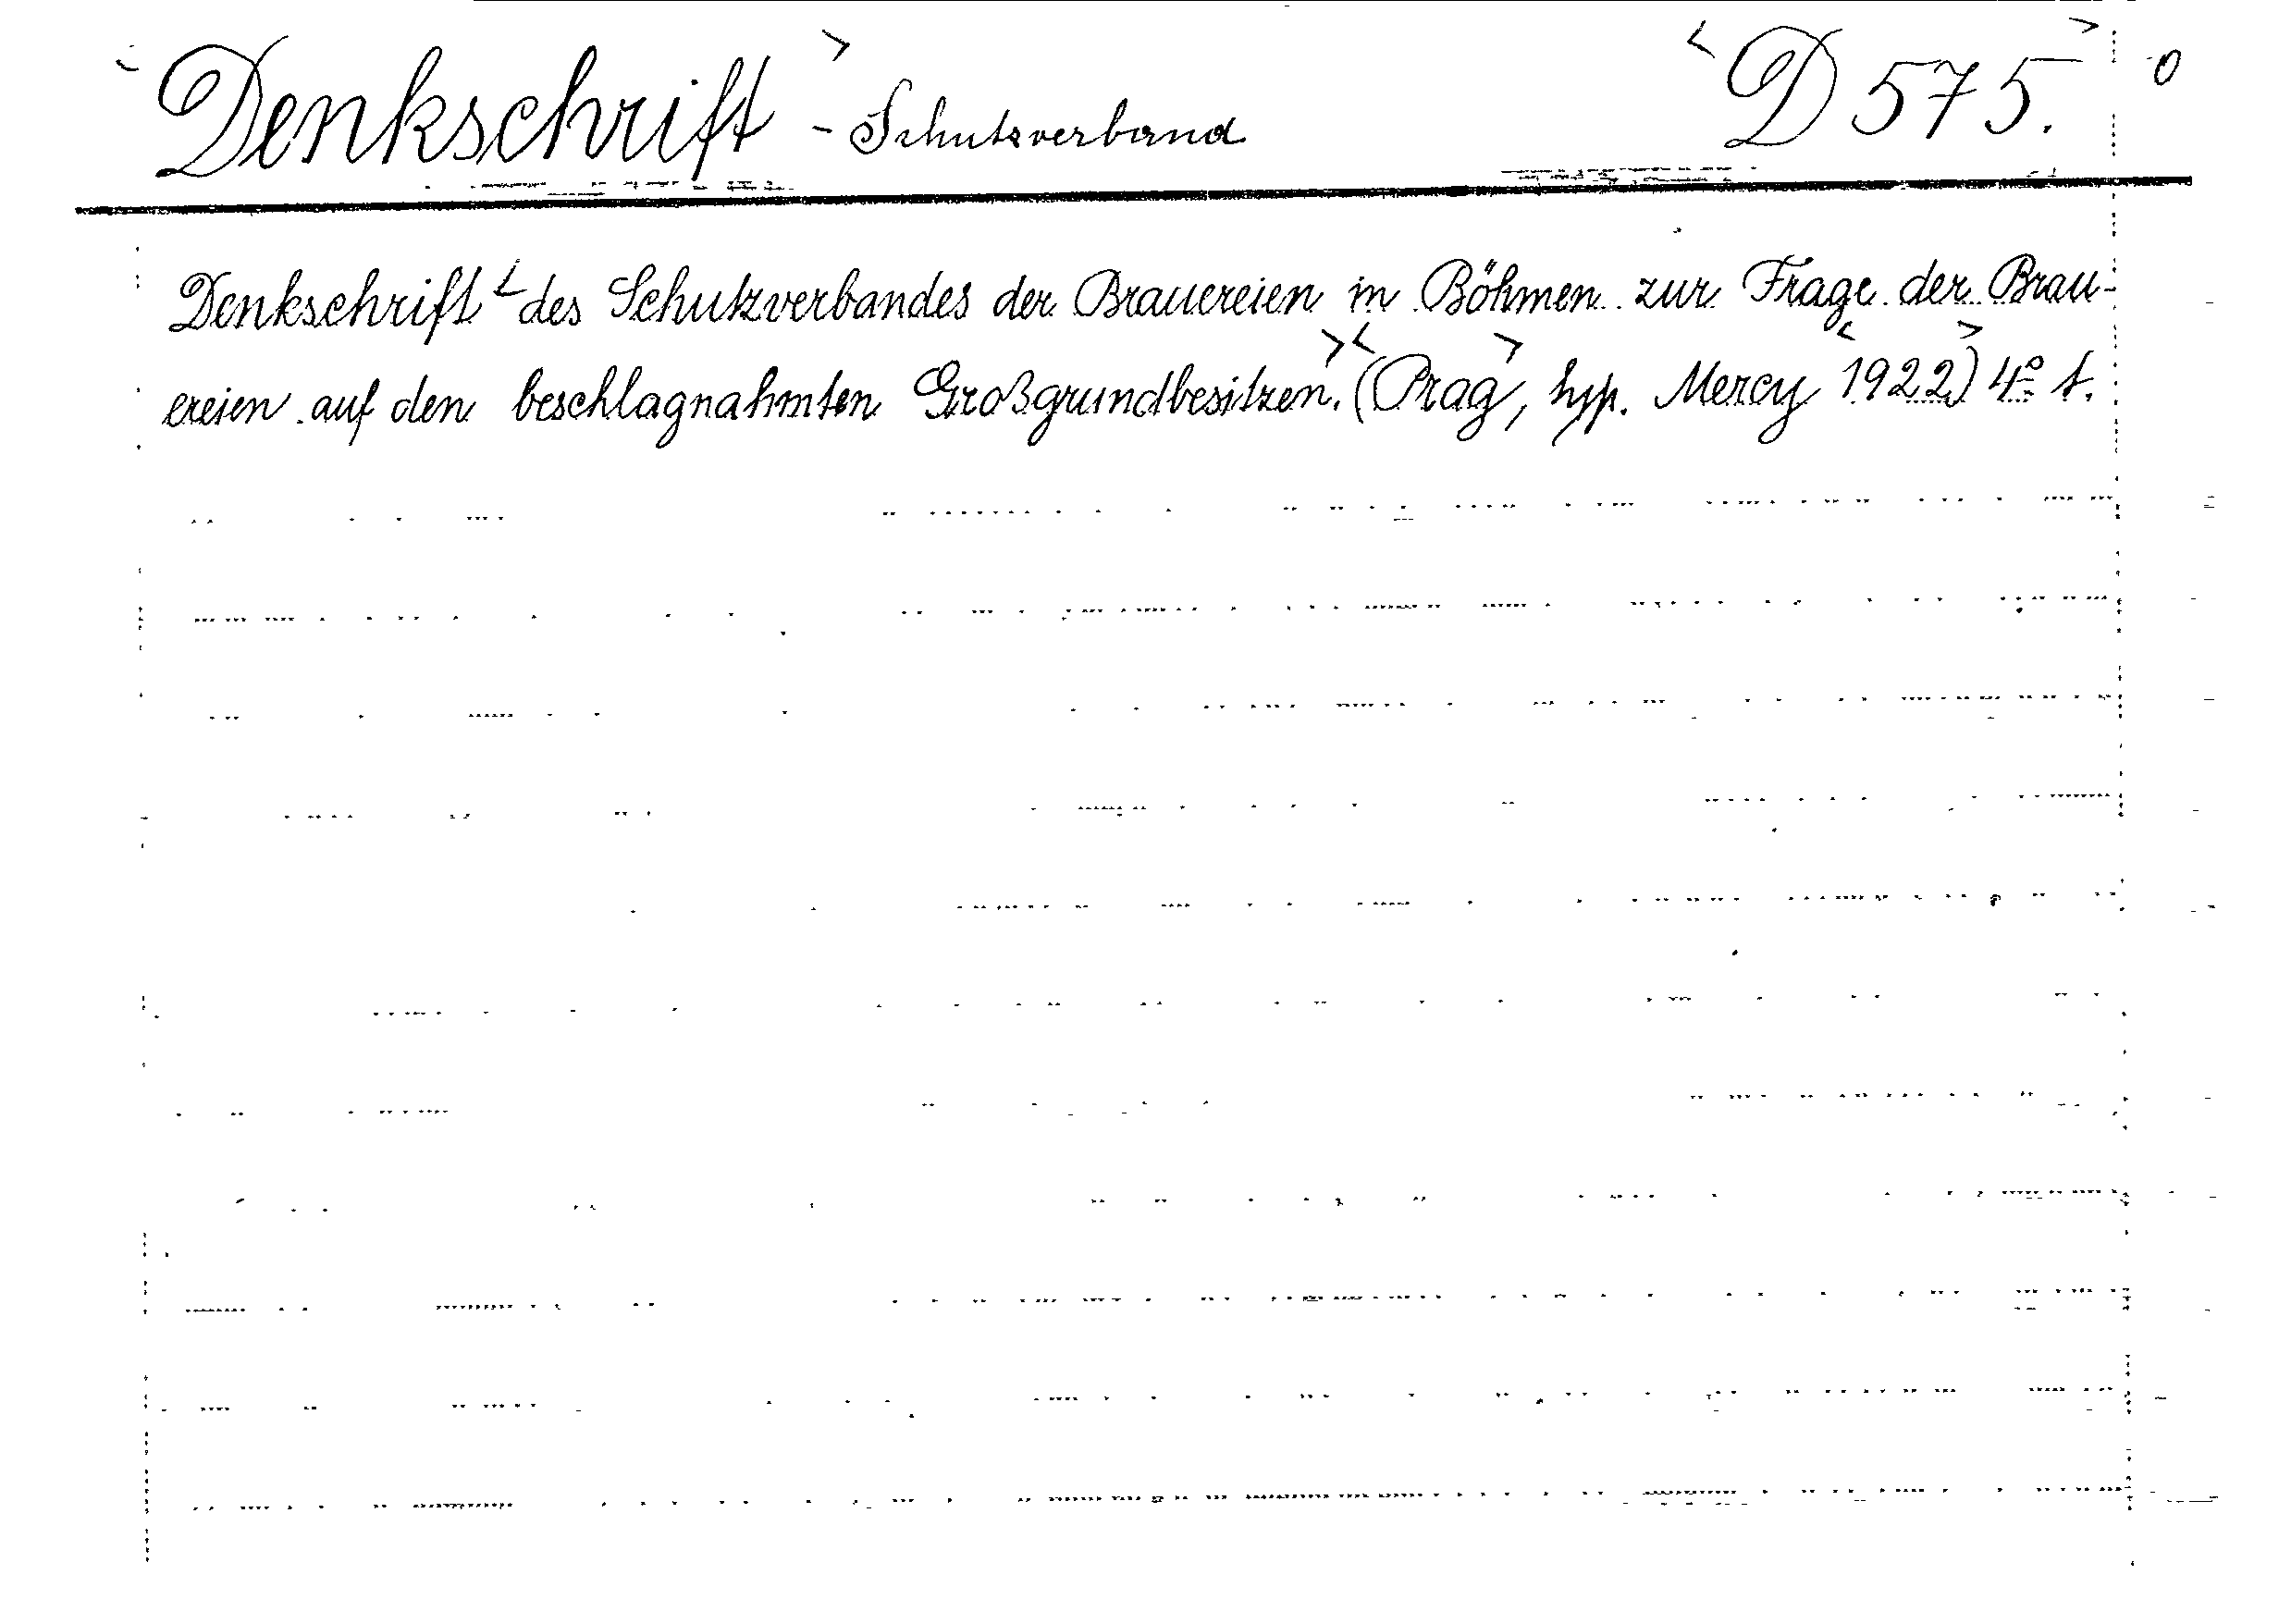 Denkschrift - Schutzverband D 575. 0
Denkschrift des Schutzverbandes der Brauereien in Böhmen zur Frage der Brau-
ereien auf den beschlagnahmten Großgrundbesitzen. (Prag, typ. Mercy 1922) 4º